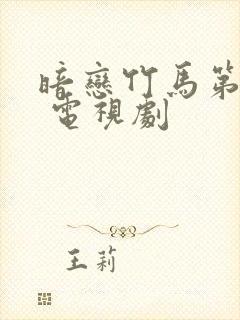 暗戀竹馬第
電視劇
王莉